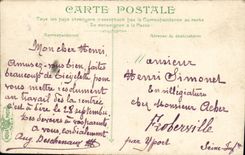 CARTE POSTALE
Tous les pays étrangers n'acceptent pas la Correspondance au recto
Se renseigner à la Poste
Correspondance
Adresse du destinataire
Mon cher Henri,
Amusez-vous bien, faites
beaucoup de bicyclette pour
vous mettre résolument
au travail dès la rentrée
c'est à dire le 28 septembre
Les devoirs à vos parents
à vous cordialement
Aug Deschenaux
Monsieur
Henri Simonet
En villégiature
chez Monsieur Acher
Froberville
par Yport
Seine-Infre